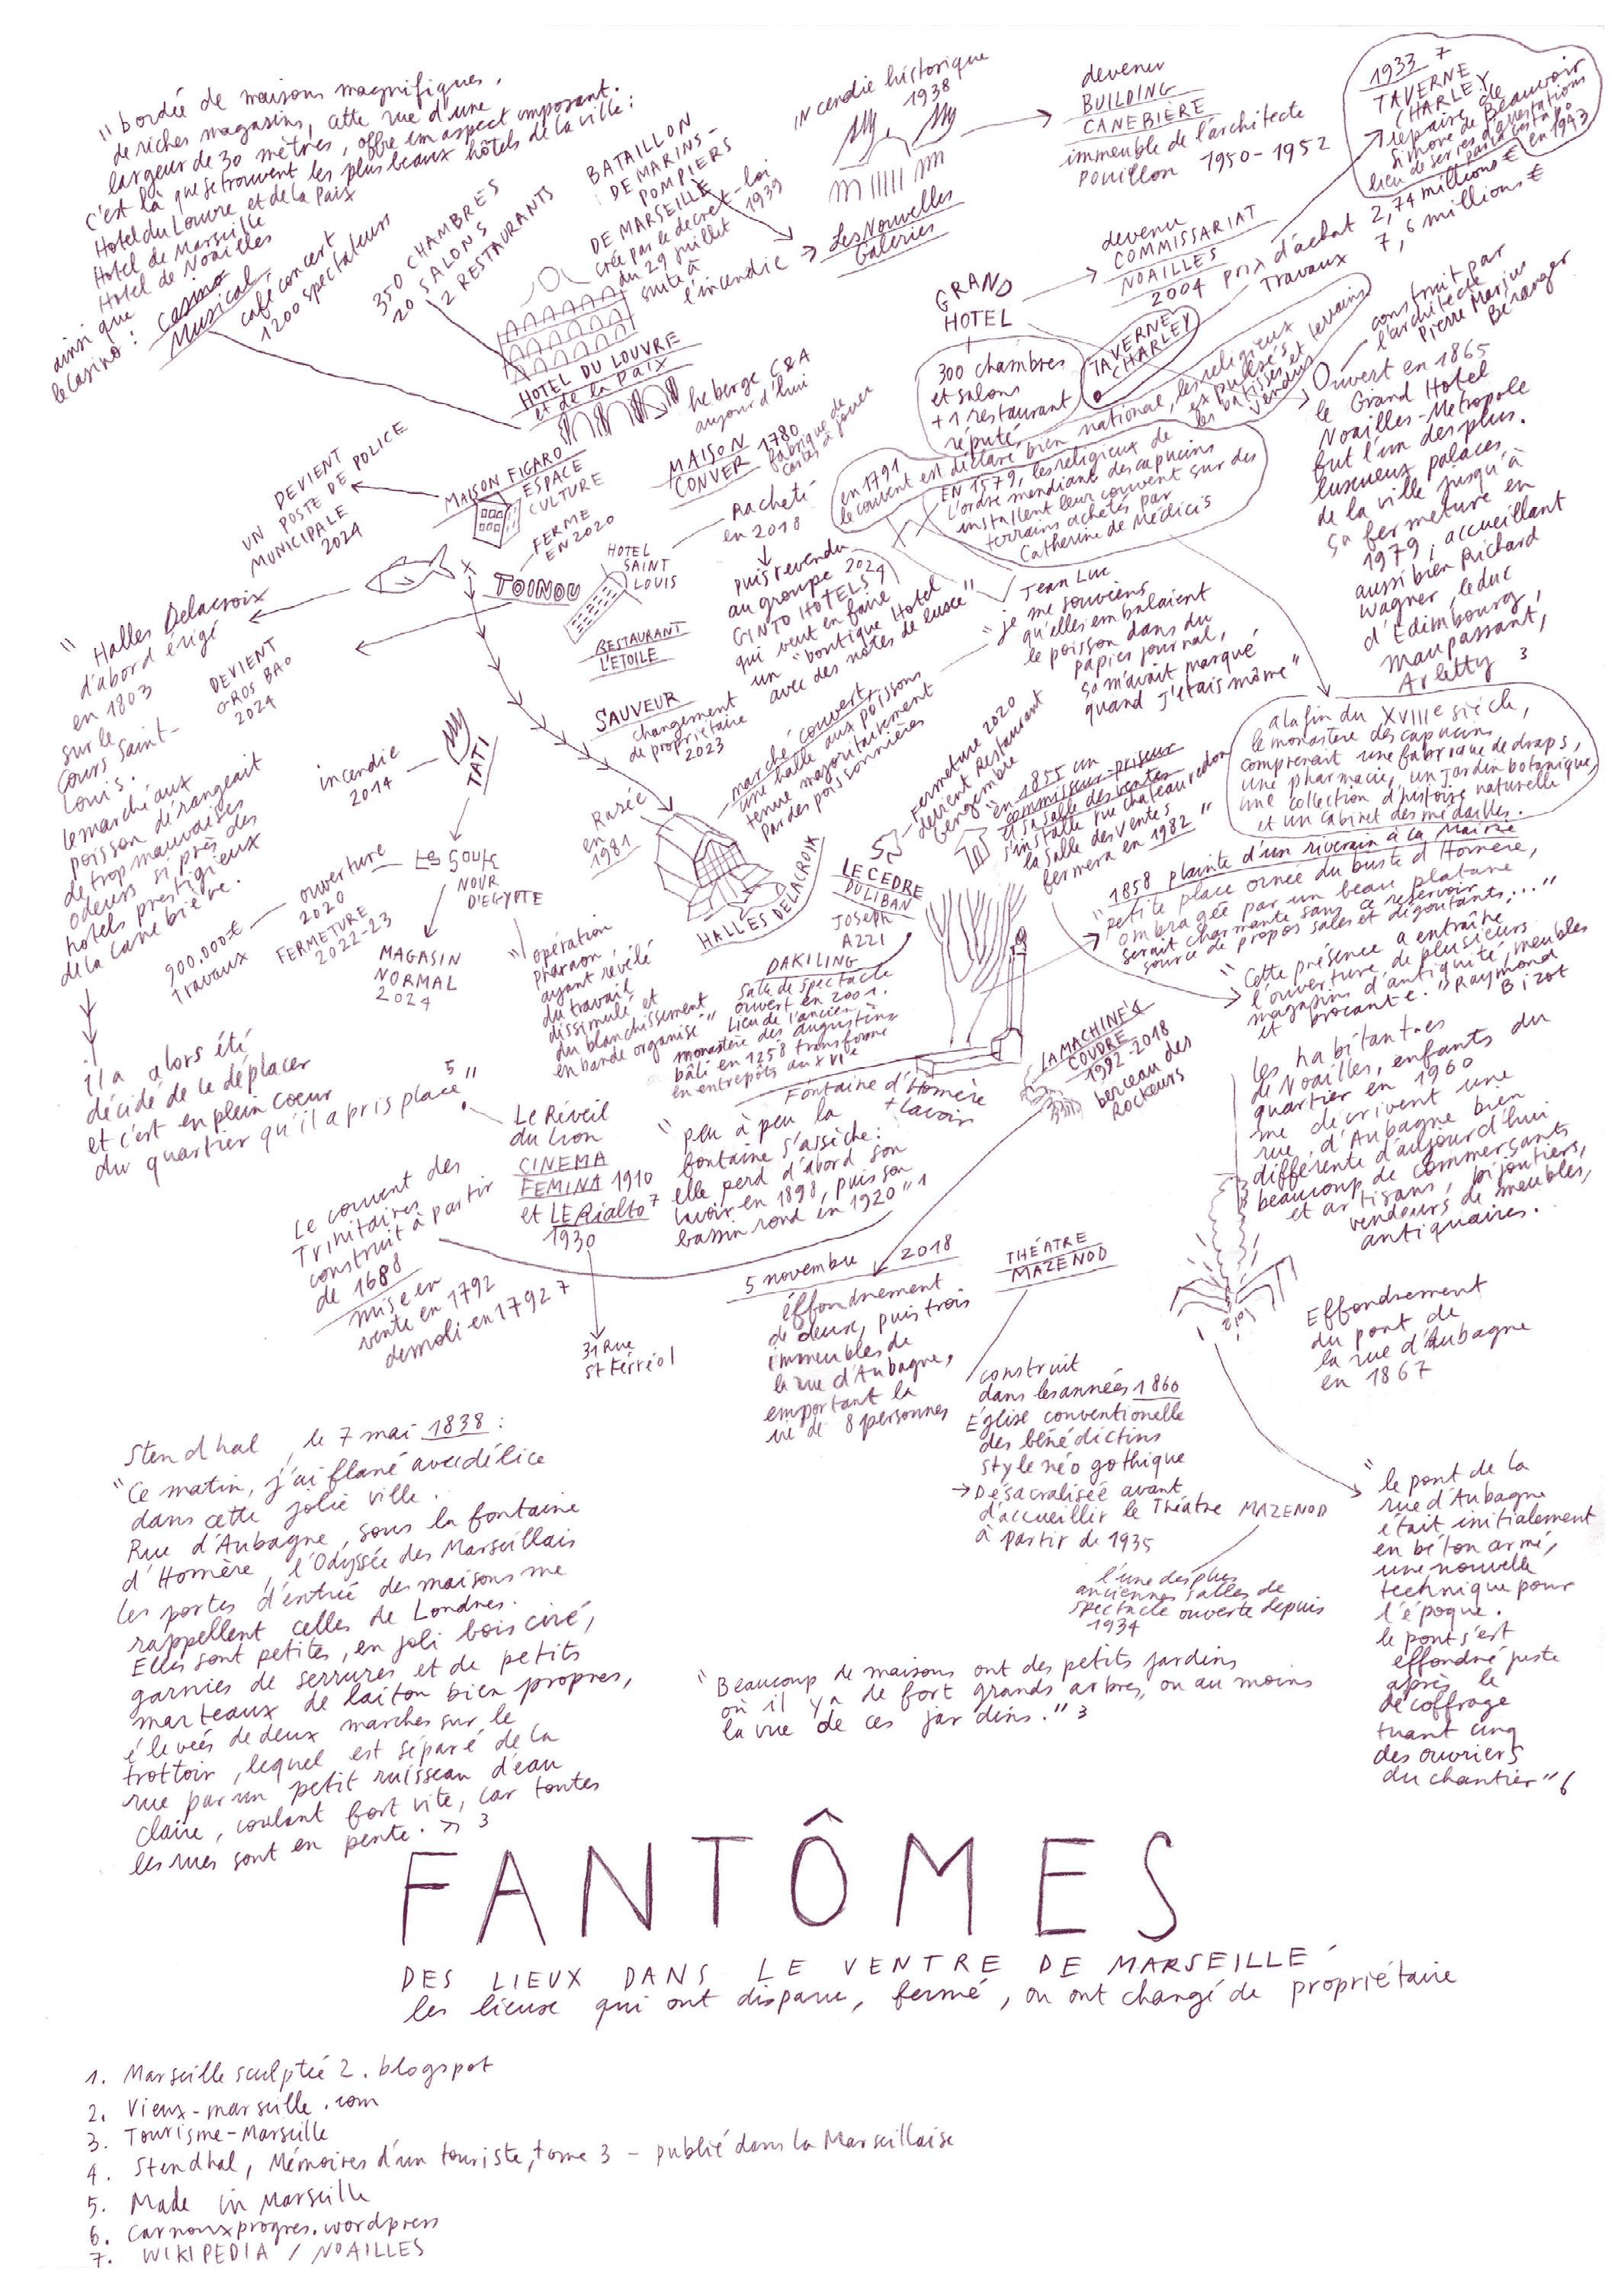 "bordée de maisons magnifiques,
de riches magasins, cette rue d'une
largeur de 30 mètres, offre un aspect imposant.
c'est là que se trouvent les plus beaux hôtels de la ville:
Hotel du Louvre et de la Paix
Hotel de Marseille
Hotel de Noailles
ainsi que
le casino: casino
Musical,
café concert
1200 spectateurs
350 CHAMBRES
20 SALONS
2 RESTAURANTS
BATAILLON
DE MARINS-
POMPIERS
DE MARSEILLE
crée par le decret-loi
du 29 juillet 1939
suite à
l'incendie
Les Nouvelles
Galeries
incendie historique
1938
devenu
BUILDING
CANEBIÈRE
immeuble de l'architecte
Pouillon 1950-1952
1933 7
TAVERNE
CHARLEY
repaire de
Simone de Beauvoir
lieu de series d'arrestations
par la gestapo
en 1943
GRAND
HOTEL
devenu
COMMISSARIAT
NOAILLES
2004 prix d'achat 2,74 millions €
Travaux 7,6 millions €
300 chambres
et salons
+ 1 restaurant
réputé
TAVERNE
CHARLEY
construit par
l'architecte
Pierre Marius
Bérenger
Ouvert en 1865
le Grand Hotel
Noailles-Metropole
fut l'un des plus
luxueux palaces
de la ville jusqu'à
sa fermeture en
1979, accueillant
aussi bien Richard
Wagner, le duc
d'Edimbourg,
Maupassant,
Arletty 3
HOTEL DU LOUVRE
et de la Paix
heberge C&A
aujourd'hui
MAISON 1780
CONVER fabrique de
cartes à jouer
en 1791
le couvent est déclaré bien national, les religieux
expulsés et
les batisses et terrains
vendus
EN 1579, les religieux de
l'ordre mendiant des capucins
installent leur couvent sur des
terrains achetés par
Catherine de Médicis
MAISON FIGARO
ESPACE
CULTURE
FERME
EN 2020
DEVIENT
UN POSTE DE POLICE
MUNICIPALE
2024
TOINOU
DEVIENT
GROS BAO
2024
HOTEL
SAINT
LOUIS
Racheté
en 2018
puis revendu
au groupe 2024
GINTO HOTELS
qui veut en faire
un "boutique Hotel
avec des notes de luxe"
RESTAURANT
L'ETOILE
SAUVEUR
changement
de propriétaire
2023
"Halles Delacroix
d'abord érigé
en 1803
sur le
Cours Saint-
Louis.
le marché aux
poisson dérangeait
de trop mauvaises
odeurs si près des
hotels prestigieux
de la canebière.
il a alors été
décidé de le déplacer
et c'est en plein coeur
du quartier qu'il a pris place" 5
incendie
2014
TATI
La Soute
ouverture
2020
FERMETURE
2022-23
900.000€
Travaux
MAGASIN
NORMAL
2024
NOUR
D'EGYPTE
"opération
pharaon"
ayant révélé
du travail
dissimulé et
du blanchissement
en bande organisé"
Rasée
en
1981
HALLES DELACROIX
marché couvert,
une halle aux poissons
tenue majoritairement
par des poissonnières
Jean Luc
"je me souviens
qu'elles embalaient
le poisson dans du
papier journal,
ça m'avait marqué
quand j'étais môme"
fermeture 2020
devient Restaurant
Gengembre
LE CEDRE
DU LIBAN
JOSEPH
AZZI
"en 1855 un
commisseur-priseur
et sa salle des ventes
s'installe rue chateauredon
la salle des ventes
fermera en 1982"
a la fin du XVIIIe siècle,
le monastère des capucins
comprenait une fabrique de draps,
une pharmacie, un jardin botanique,
une collection d'histoire naturelle
et un cabinet des médailles.
1858 plainte d'un riverain à la Mairie
"petite place ornée du buste d'Homère,
ombragée par un beau platane
serait charmante sans ce reservoir
source de propos sales et dégoutants,..."
"Cette présence a entraîné
l'ouverture de plusieurs
magasins d'antiquité, meubles
et brocante." Raymond
Bizot
DAKILING
salle de spectacle
ouvert en 2001.
Lieu de l'ancien
monastère des augustins
bâti en 1258 transformé
en entrepôts au XVIe
Fontaine d'Homère
+ lavoir
LA MACHINE À
COUDRE
1992-2018
berceau des
Rockeurs
"peu à peu la
fontaine s'assèche:
elle perd d'abord son
lavoir en 1898, puis son
bassin rond en 1920" 1
les habitantes
de Noailles, enfants du
quartier en 1960
me décrivent une
rue d'Aubagne bien
différente d'aujourd'hui
beaucoup de commerçants
et artisans, bijoutiers,
vendeurs de meubles,
antiquaires.
Le Réveil
du Lion
CINEMA
FEMINA 1910
et LE Rialto 7
1930
31 Rue
St Férréol
Le couvent des
Trinitaires
construit à partir
de 1688
mise en
vente en 1792
demoli en 1792 7
5 novembre 2018
éffondrement
de deux, puis trois
immeubles de
la rue d'Aubagne,
emportant la
vie de 8 personnes
THÉATRE
MAZENOD
construit
dans les années 1860
Église conventionelle
des bénédictins
style néo gothique
→ Désacralisée avant
d'accueillir le Théatre MAZENOD
à partir de 1935
l'une des plus
anciennes salles de
spectacle ouverte depuis
1934
Effondrement
du pont de
la rue d'Aubagne
en 1867
"le pont de la
rue d'Aubagne
était initialement
en béton armé,
une nouvelle
technique pour
l'époque.
le pont s'est
effondré juste
après le
décoffrage
tuant cinq
des ouvriers
du chantier" 6
Stendhal, le 7 mai 1838:
"Ce matin, j'ai flané avec délice
dans cette jolie ville.
Rue d'Aubagne, sous la fontaine
d'Homère, l'Odyssée des Marseillais
les portes d'entrée des maisons me
rappellent celles de Londres.
Elles sont petites, en joli bois ciré,
garnies de serrures et de petits
marteaux de laiton bien propres,
élevées de deux marches sur le
trottoir, lequel est séparé de la
rue par un petit ruisseau d'eau
claire, coulant fort vite, car toutes
les rues sont en pente. » 3
"Beaucoup de maisons ont des petits jardins
où il y a de fort grands arbres, ou au moins
la vue de ces jardins." 3
FANTÔMES
DES LIEUX DANS LE VENTRE DE MARSEILLE
les lieux qui ont disparu, fermé, ou ont changé de propriétaire
1. Marseille sculptée 2. blogspot
2. Vieux-marseille.com
3. Tourisme-Marseille
4. Stendhal, Mémoires d'un touriste, tome 3 - publié dans la Marseillaise
5. Made in Marseille
6. carnouxprogres.wordpress
7. WIKIPEDIA / NOAILLES